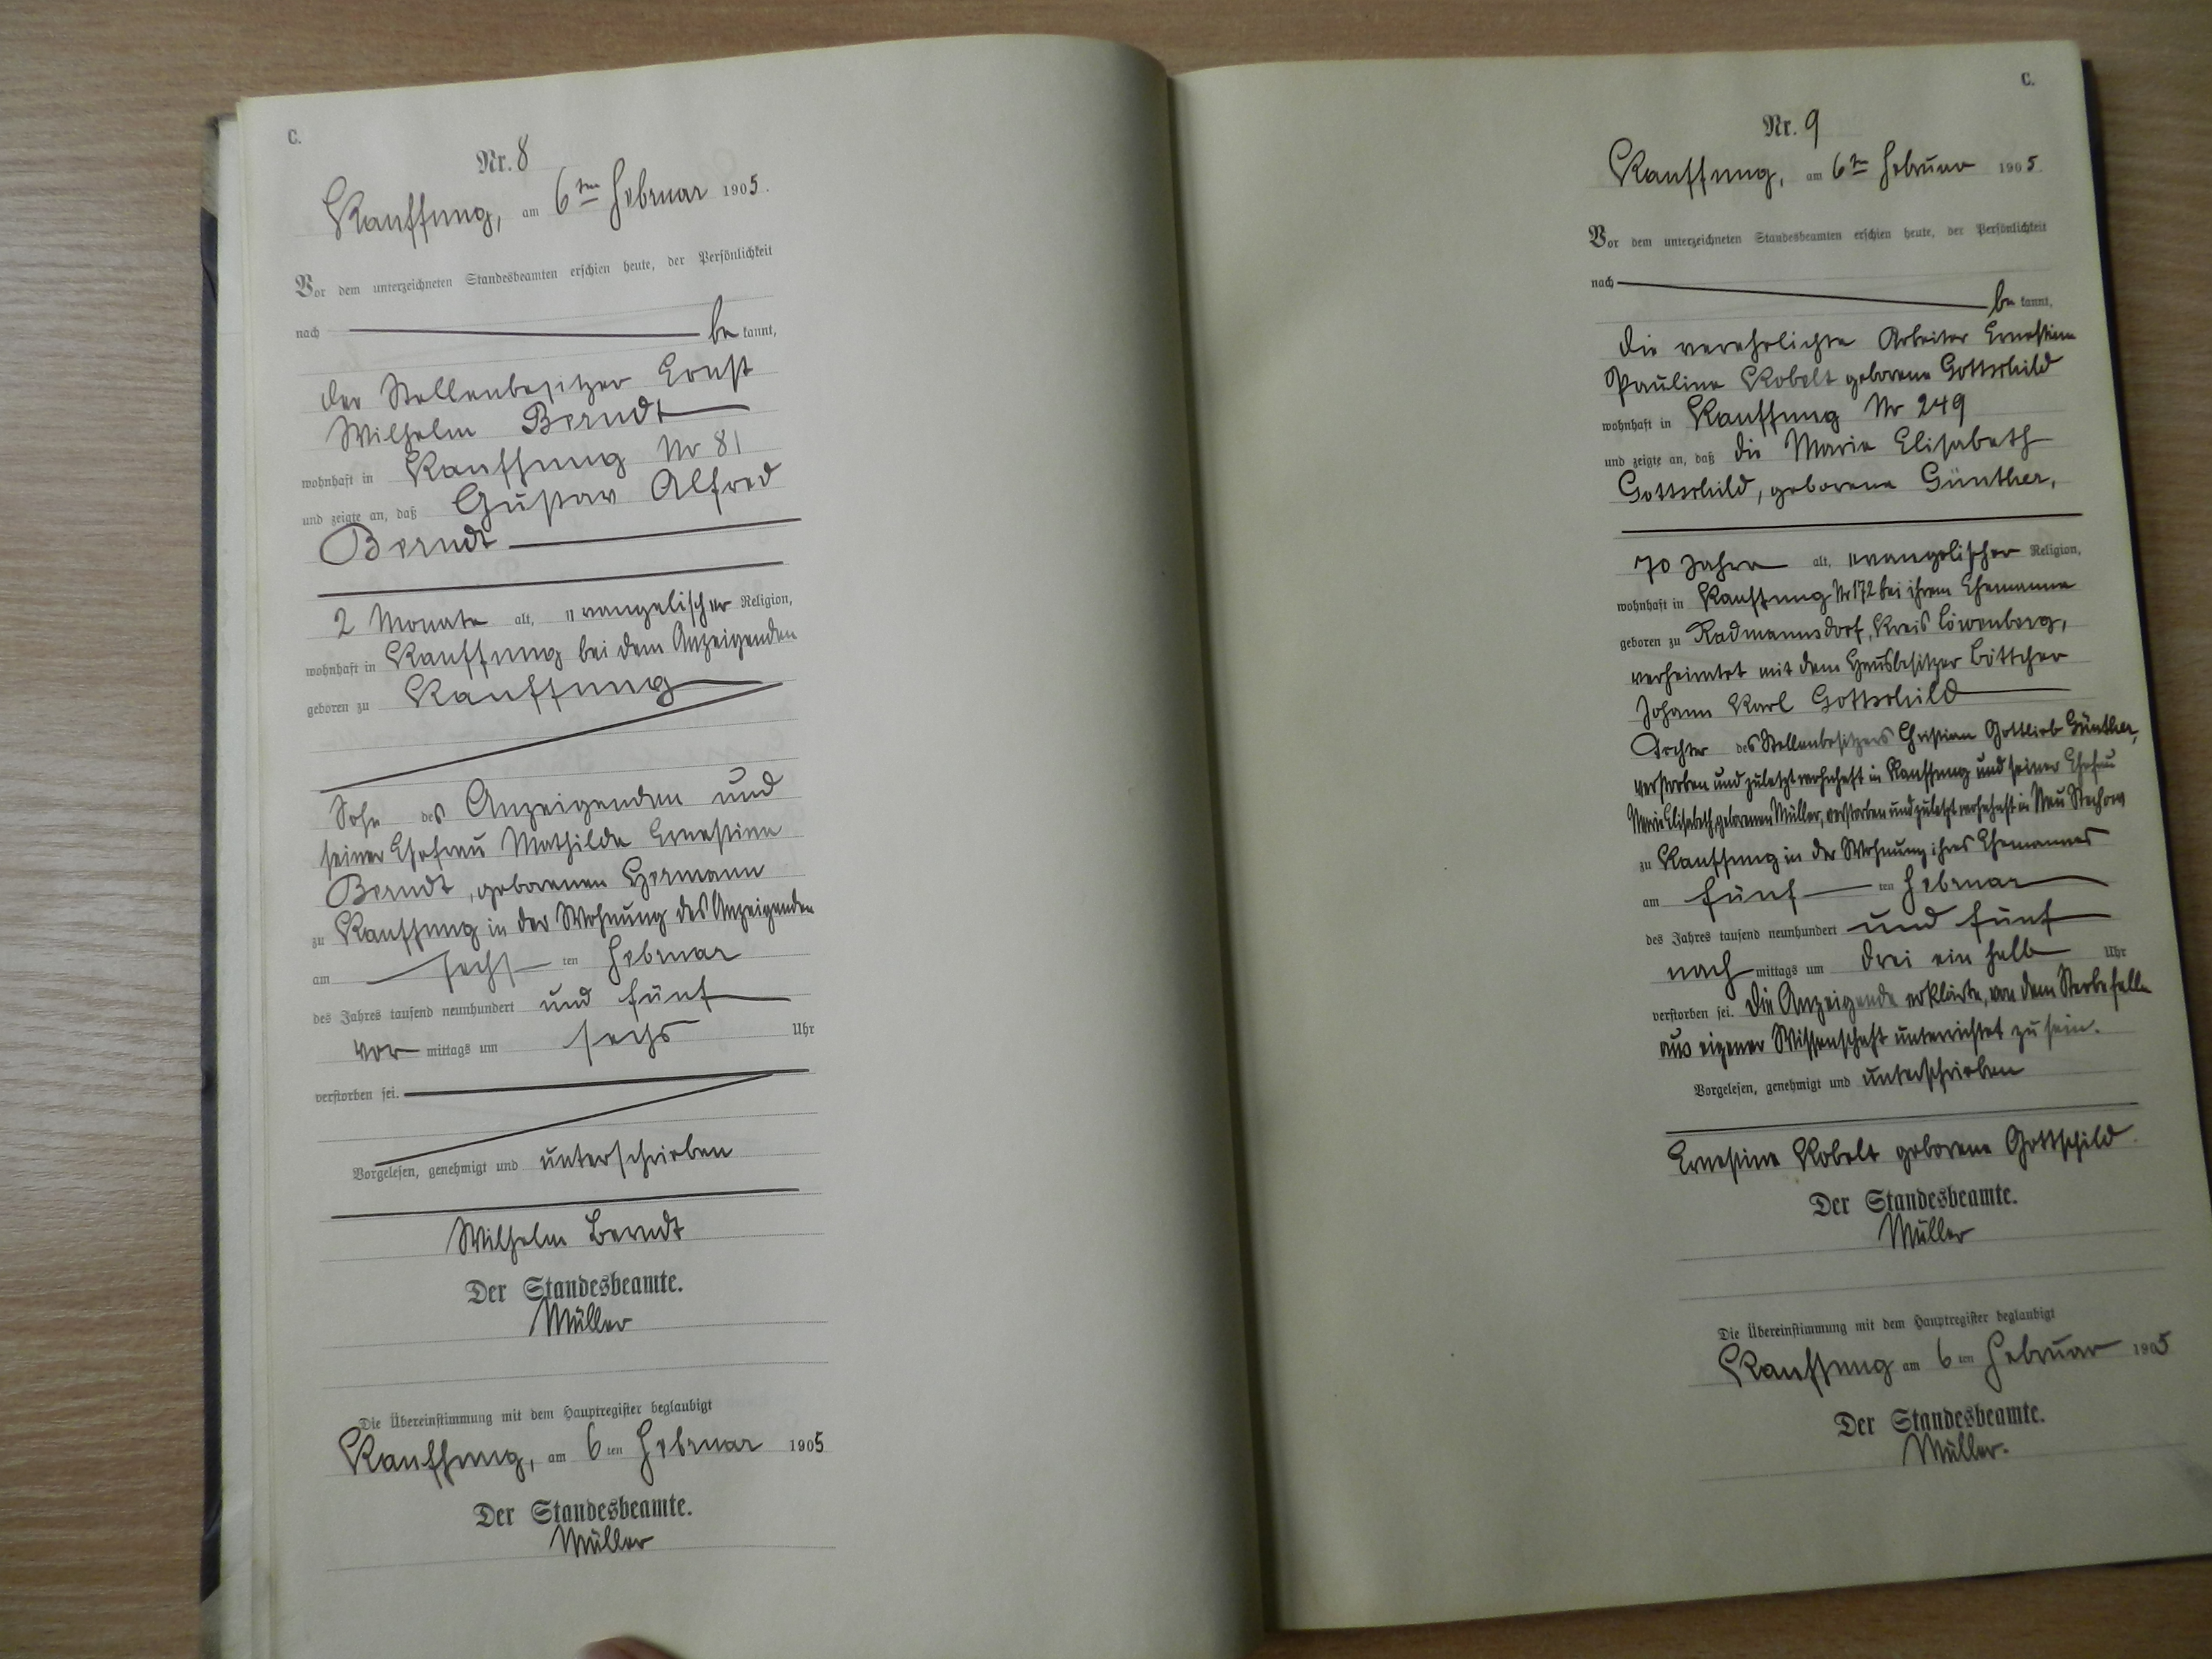 C.
Nr. 8
Kauffung, am 6ten Februar 1905.
Vor dem unterzeichneten Standesbeamten erschien heute, der Persönlichkeit
nach be kannt,
der Stellenbesitzer Ernst
Wilhelm Berndt
wohnhaft in Kauffung Nr 81
und zeigte an, daß Gustav Alfred
Berndt
2 Monate alt, evangelischer Religion,
wohnhaft in Kauffung bei dem Anzeigenden
geboren zu Kauffung
Sohn des Anzeigenden und
seiner Ehefrau Mathilde Ernestine
Berndt, geborenen Hermann
zu Kauffung in der Wohnung des Anzeigenden
am sechs ten Februar
des Jahres tausend neunhundert und fünf
vor mittags um sechs Uhr
verstorben sei.
Vorgelesen, genehmigt und unterschrieben
Wilhelm Berndt
Der Standesbeamte.
Müller
Die Übereinstimmung mit dem Hauptregister beglaubigt
Kauffung, am 6 ten Februar 1905
Der Standesbeamte.
Müller
C.
Nr. 9
Kauffung, am 6ten Februar 1905.
Vor dem unterzeichneten Standesbeamten erschien heute, der Persönlichkeit
nach be kannt,
die verehelichte Arbeiter Ernestine
Pauline Kobelt geborene Gottschild
wohnhaft in Kauffung Nr 249
und zeigte an, daß die Marie Elisabeth
Gottschild, geborene Günther,
70 Jahre alt, evangelischer Religion,
wohnhaft in Kauffung Nr 172 bei ihrem Ehemanne
geboren zu Radmannsdorf, Kreis Löwenberg,
verheiratet mit dem Hausbesitzer Böttcher
Johann Karl Gottschild
Tochter des Stellenbesitzers Christian Gottlieb Günther,
verstorben und zuletzt wohnhaft in Kauffung und seiner Ehefrau
Marie Elisabeth, geborenen Müller, verstorben und zuletzt wohnhaft in Neu Stechow
zu Kauffung in der Wohnung ihres Ehemannes
am fünf ten Februar
des Jahres tausend neunhundert und fünf
nach mittags um drei ein halb Uhr
verstorben sei. Die Anzeigende erklärte, von dem Sterbefalle
aus eigener Wissenschaft unterrichtet zu sein.
Vorgelesen, genehmigt und unterschrieben
Ernestine Kobelt geborene Gottschild.
Der Standesbeamte.
Müller
Die Übereinstimmung mit dem Hauptregister beglaubigt
Kauffung am 6 ten Februar 1905
Der Standesbeamte.
Müller.